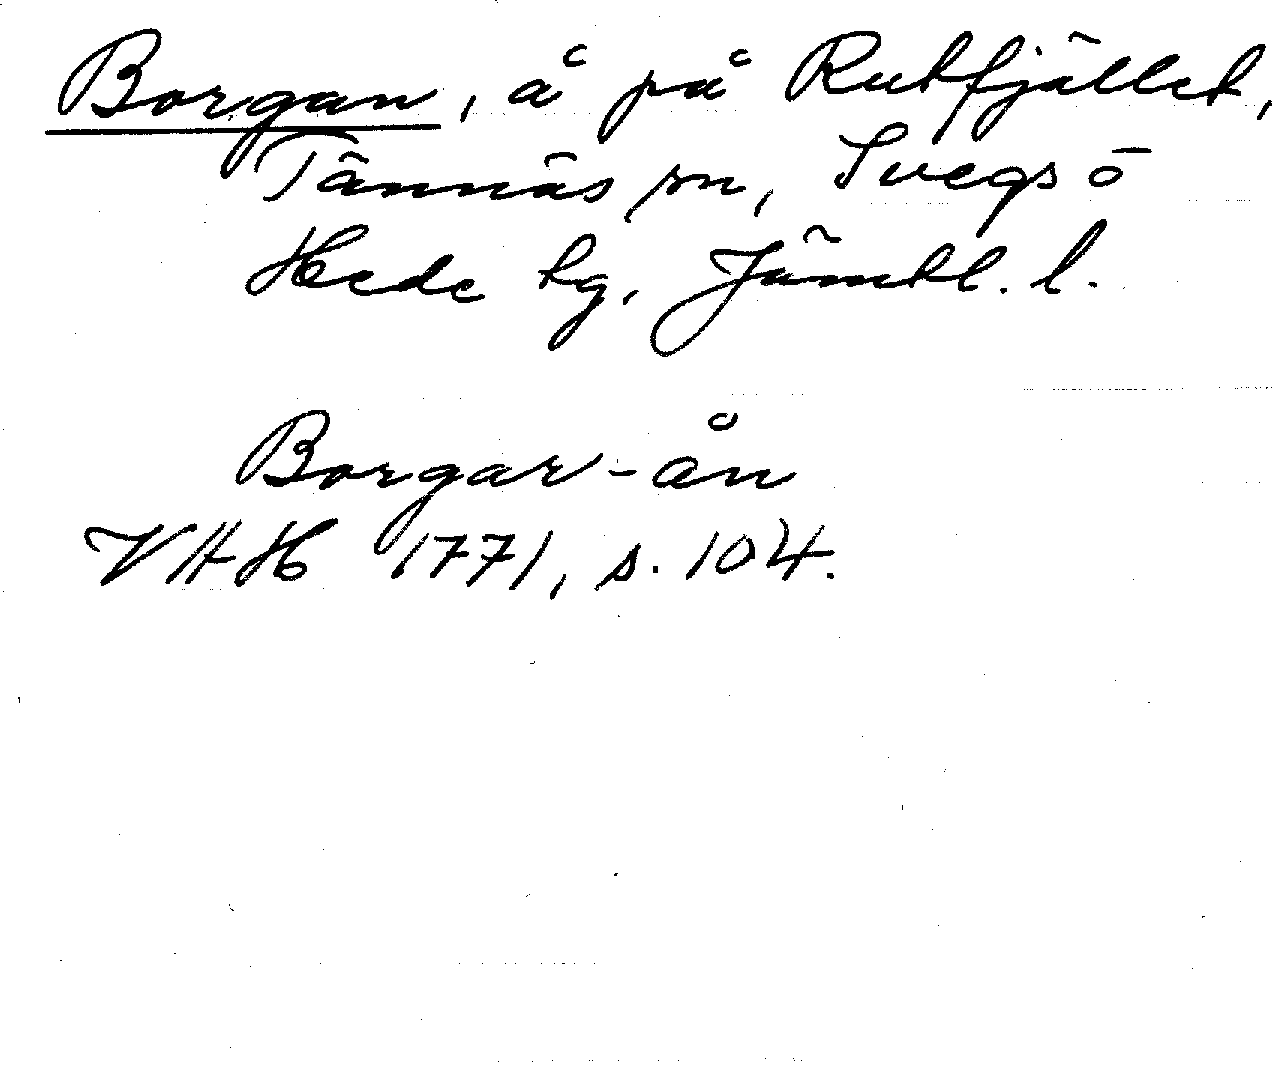 Borgan, å på Rutfjället,
Tännäs sn, Svegs o
Hede tg, Jämtl. l.
Borgar-ån
VHH 1771, s. 104.